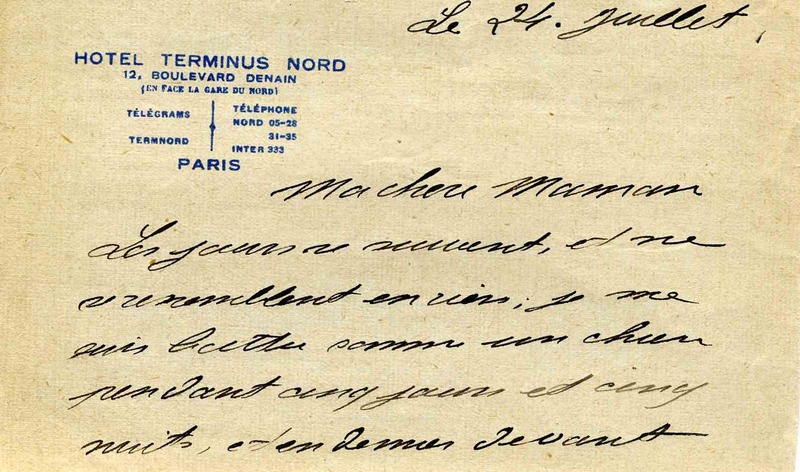 Le 24. Juillet,
HOTEL TERMINUS NORD
12, BOULEVARD DENAIN
(EN FACE LA GARE DU NORD)
TÉLÉGRAMS
TERMNORD
TÉLÉPHONE
NORD 05-28
31-35
INTER 333
PARIS
Ma chere Maman
Les jours se suivent, et ne
se ressemblent en rien; je me
suis battu comme un chien
pendant cinq jours et cinq
nuits, et en dernier devant